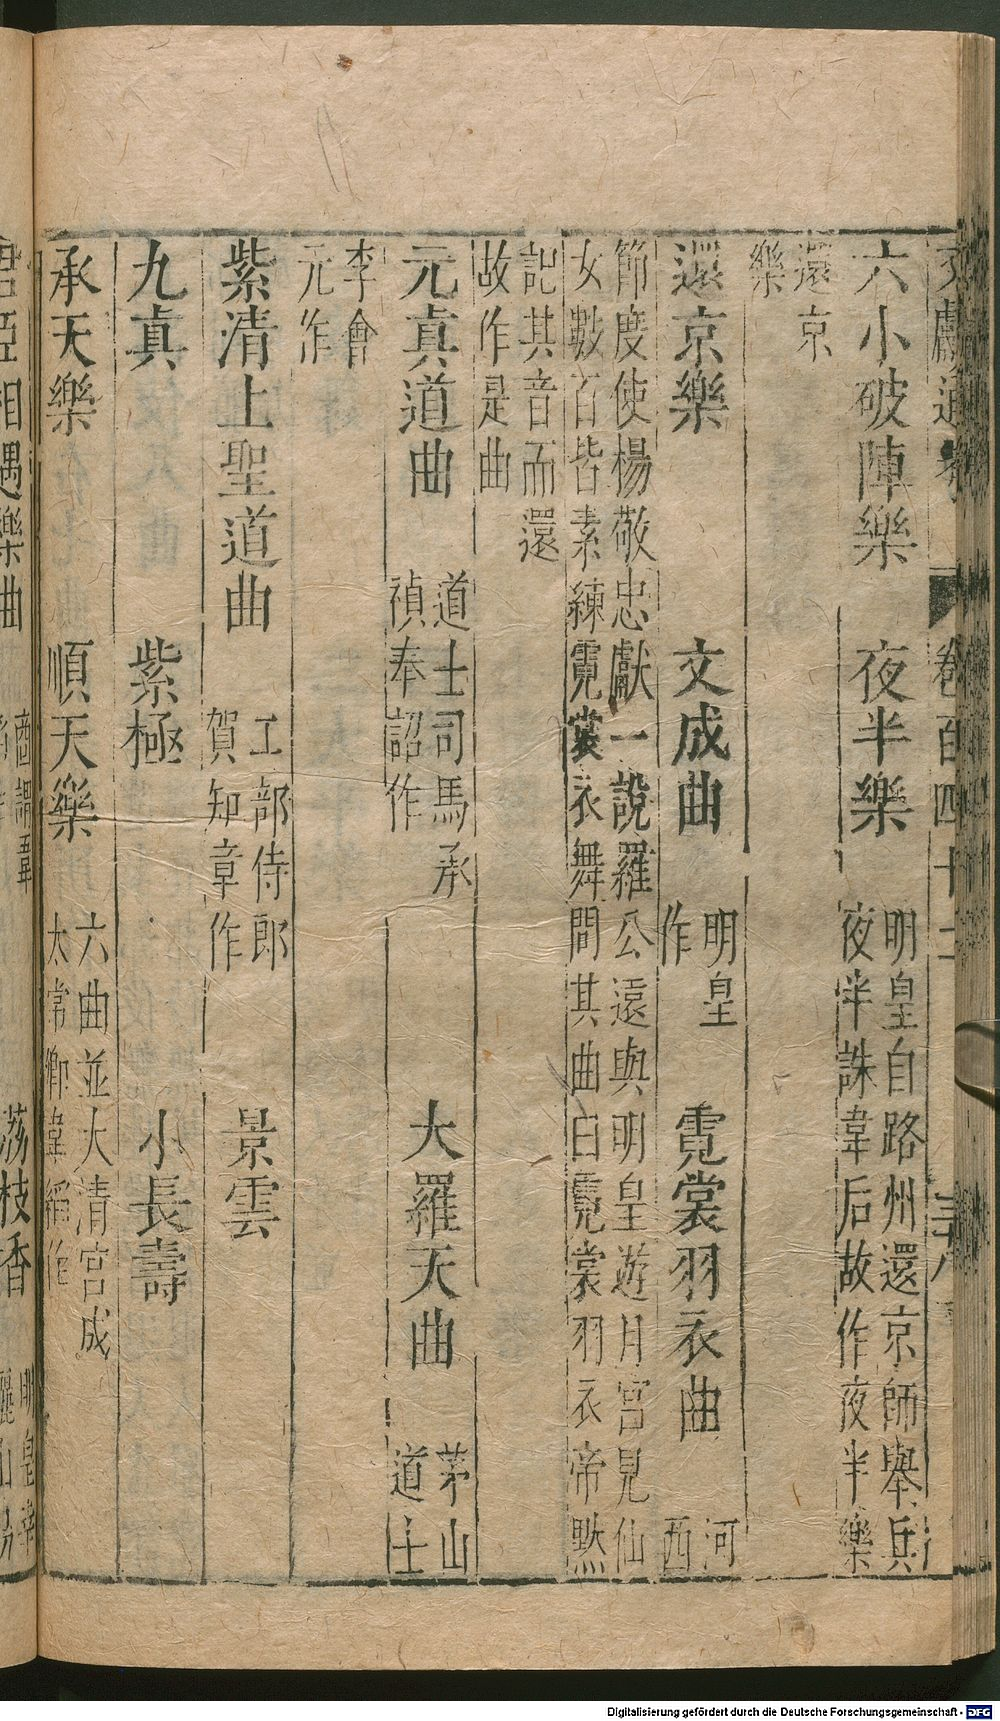 文獻通考 卷百四十二 三八
六小破陣樂 夜半樂 明皇自路州還京師舉兵
夜半誅韋后故作夜半樂
還京
樂
還京樂 文成曲 明皇
作 霓裳羽衣曲 河
西
節度使楊敬忠獻一說羅公遠與明皇遊月宮見仙
女數百皆素練霓裳衣舞問其曲曰霓裳羽衣帝黙
記其音而還
故作是曲
元真道曲 道士司馬承
禎奉詔作 大羅天曲 茅山
道士
李會
元作
紫清上聖道曲 工部侍郎
賀知章作 景雲
九真 紫極 小長壽
承天樂 順天樂 六曲並大清宮成
太常卿韋縚作
君臣相遇樂曲 商調韋
荔枝香 明皇幸
驪山
Digitalisierung gefördert durch die Deutsche Forschungsgemeinschaft - DFG